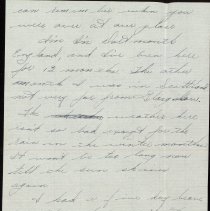 can
when you
were over at our place
Am in Dartmouth
England, and I've been here
for 12 months. The other
month I was in Scotland
not very far from Glasgow.
The weather here
isn't so bad except for the
rain in the winter months
It won't be too long now
till the sun shines
again.
I had a few days leave